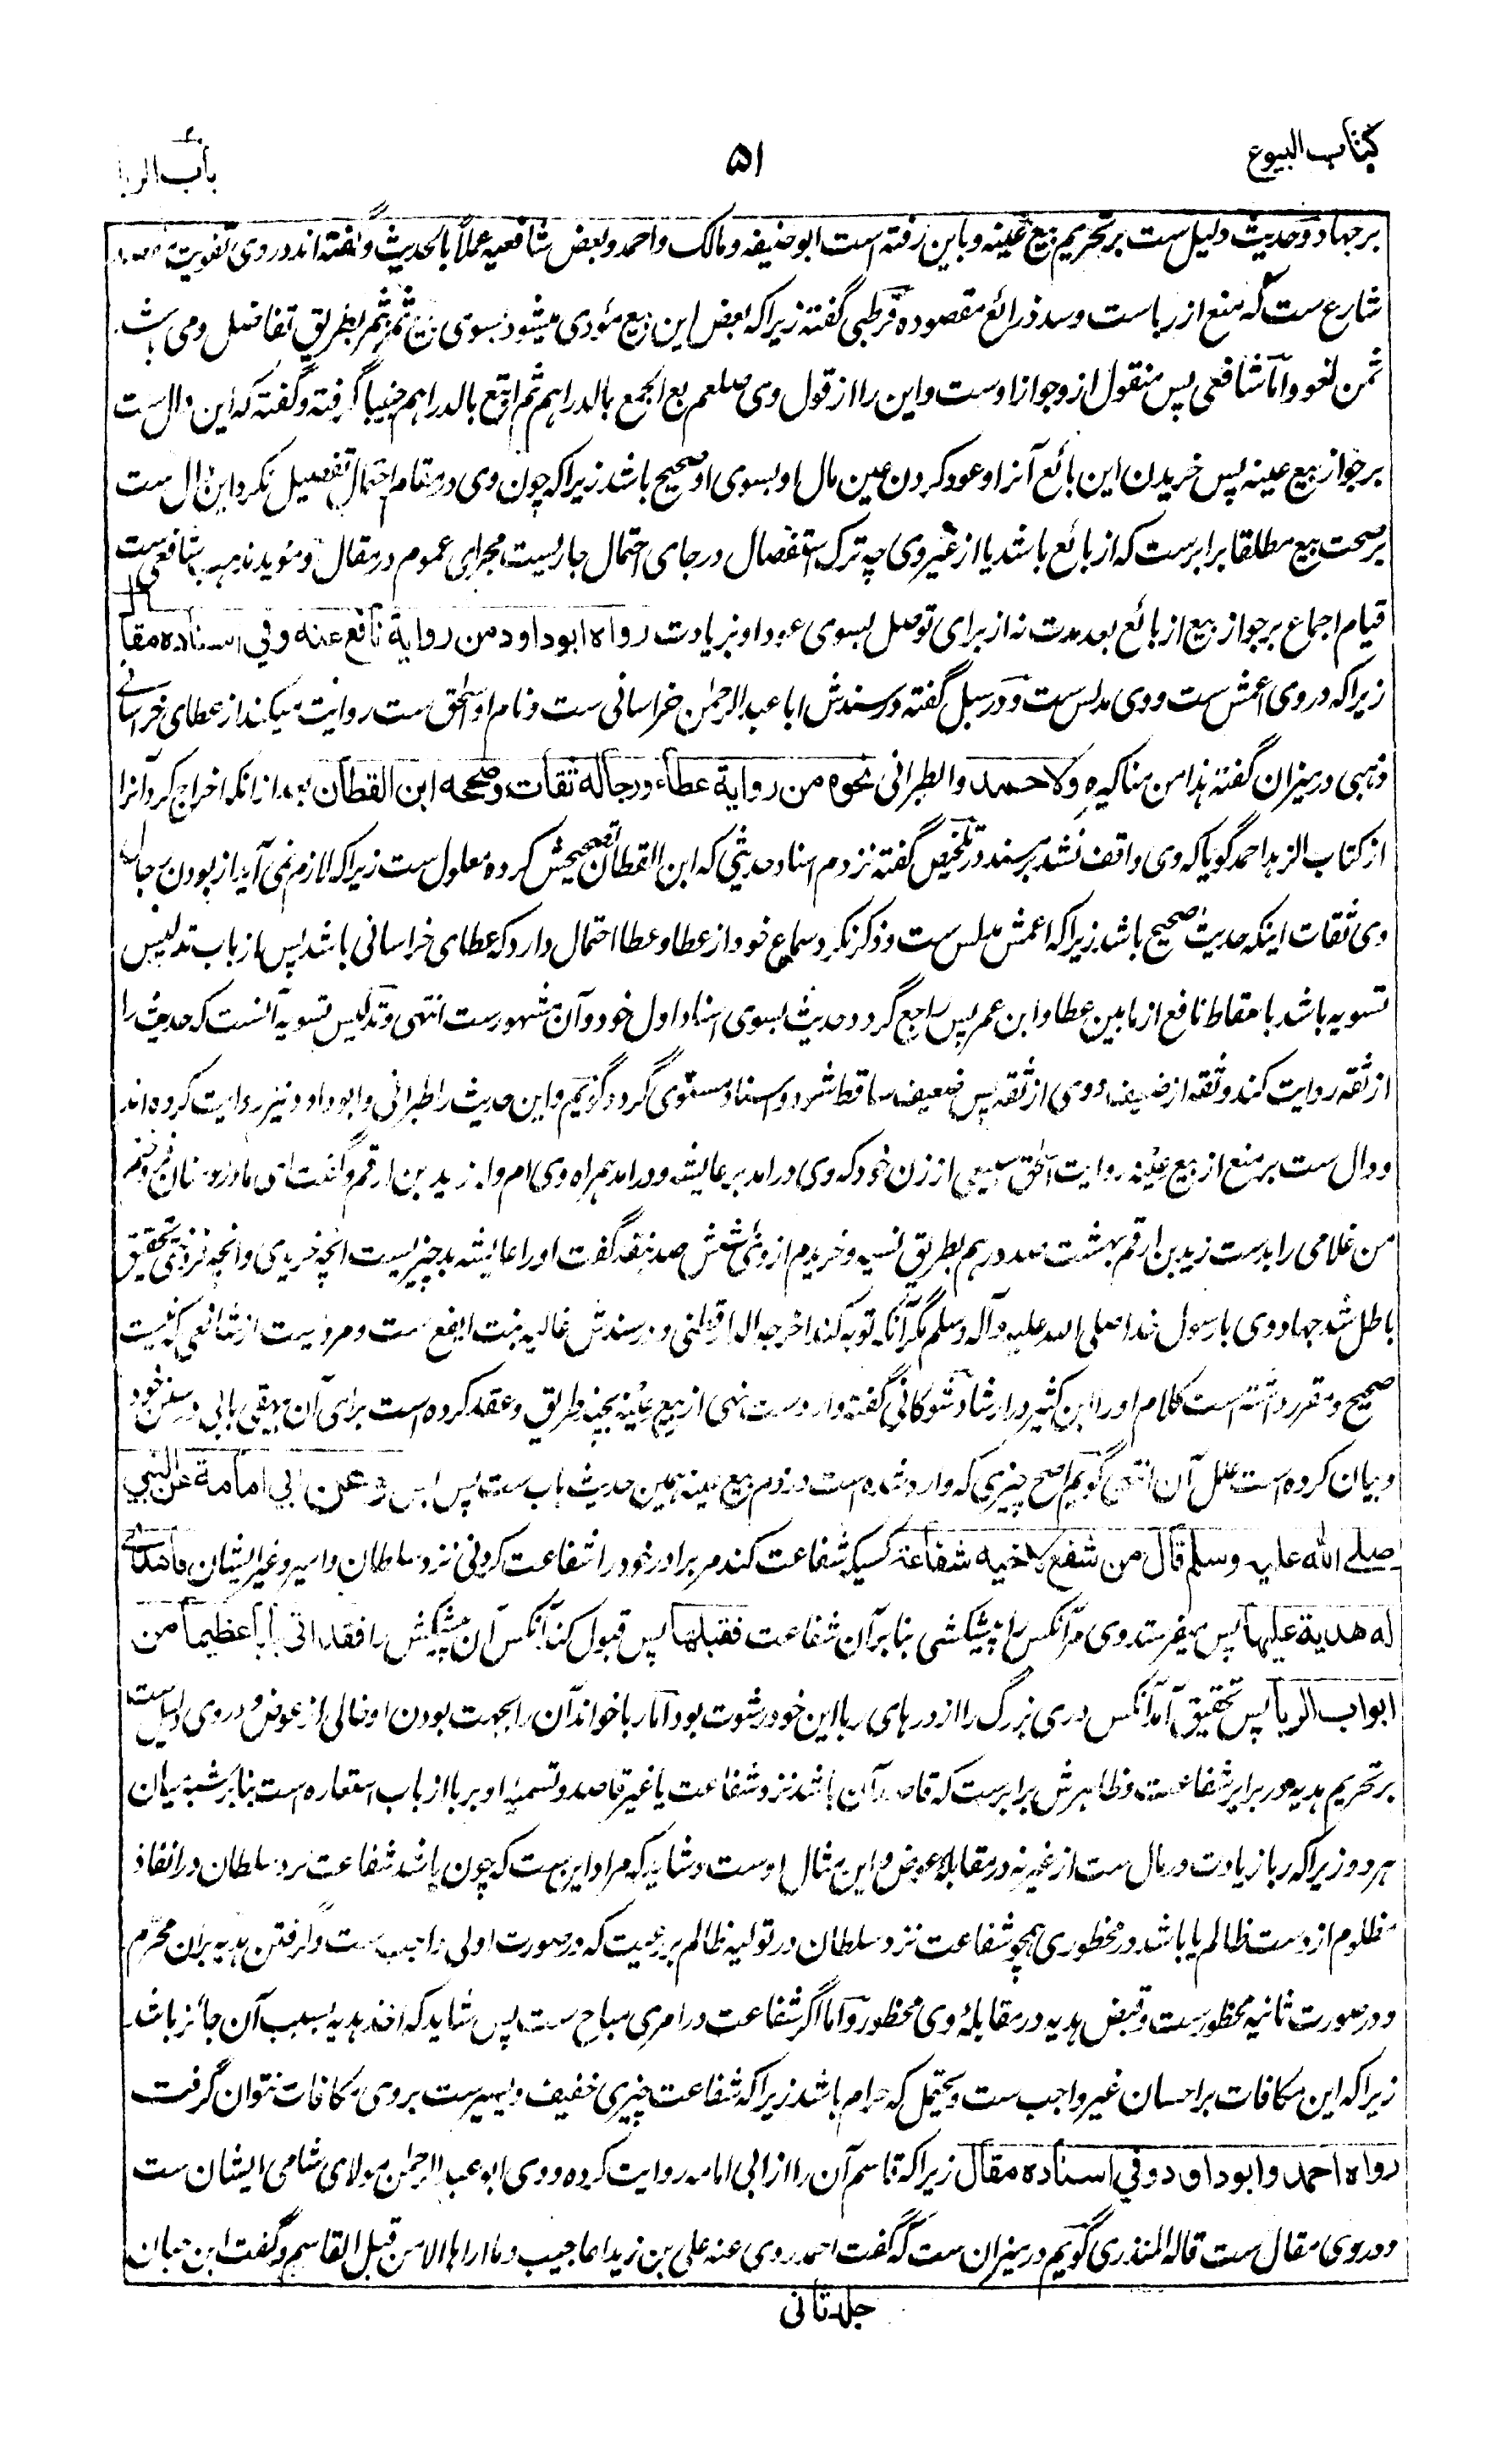 کتاب البیوع
۵۱
باب الربا
بر جهاد و حدیث دلیل ست بر تحریم بیع عینه و باین رفته است ابو حنیفه و مالک و احمد و بعض شافعیه عملاً بالحدیث و گفته اند در وی تفویت مقصد
شارع ست که منع از ربا ست و سد ذرائع مقصوده قرطبی گفته زیرا که بعض این بیع مؤدی میشود بسوی بیع تمر بتمر بطریق تفاضل و می باشد
ثمن لغو و اما شافعی پس منقول از و جواز اوست و این را از قول وی صلعم بع الجمع بالدراهم ثم ابتع بالدراهم جنیبا گرفته و گفته که این دال ست
بر جواز بیع عینه پس خریدن این بائع آنرا و عود کردن عین مال او بسوی او صحیح باشد زیرا که چون وی در مقام احتمال تفصیل نکرد این دال ست
بر صحت بیع مطلقا برابر ست که از بائع باشد یا از غیر وی چه ترک استفصال در جای احتمال جاریست مجرای عموم در مقال و مؤید مذهب شافعی ست
قیام اجماع بر جواز بیع از بائع بعد مدت نه از برای توصل بسوی عود او بزیادت رواه ابو داود من روایة نافع عنه و في اسناده مقال
زیرا که در وی اعمش ست و وی مدلس ست و در سبل گفته در سندش ابا عبد الرحمن خراسانی ست و نام او اسحٰق ست روایت میکند از عطای خراسانی
ذهبی در میزان گفته هذا من مناکیره ولاحمد والطبرانی نحوه من روایة عطاء ورجاله ثقات وصححه ابن القطان بعد از انکه اخراج کرد آنرا
از کتاب الزهد احمد گویا که وی واقف نشد بر مسند در تلخیص گفته نزدم اسناد حدیثی که ابن القطان تصحیحش کرده معلول ست زیرا که لازم نمی آید از بودن رجال
وی ثقات اینکه حدیث صحیح باشد زیرا که اعمش مدلس ست و ذکر نکرد سماع خود از عطا و عطا احتمال دارد که عطای خراسانی باشد پس از باب تدلیس
تسویه باشد باسقاط نافع از مابین عطا و ابن عمر پس راجع گردد حدیث بسوی اسناد اول خود و آن مشهور ست انتهی و تدلیس تسویه آنست که حدیث را
از ثقه روایت کند و ثقه از ضعیف و وی از ثقه پس ضعیف ساقط شود و اسناد مستوی گردد گویم و این حدیث را طبرانی و ابو داود نیز روایت کرده اند
و دال ست بر منع از بیع عینه روایت اسحق سبیعی از زن خود که وی درامد بر عایشه و درامد همراه وی ام ولد زید بن ارقم و گفت ای مادر مؤمنان فروختم
من غلامی را بدست زید بن ارقم بهشت صد درهم بطریق نسیه و خریدم از وی بشش صد نقد گفت او را عایشه بد چیزیست انچه خریدی و انچه فروختی تحقیق
باطل شد جهاد وی با رسول خدا صلی الله علیه و آله و سلم مگر آنکه توبه کند اخرجه الدارقطنی و در سندش غالیه بنت ایفع ست و مرویست از شافعی که نیست
صحیح و مقرر داشته است کلام او را ابن کثیر در ارشاد شوکانی گفته وارد ست نهی از بیع عینه بچند طریق و عقد کرده است برای آن بیهقی بابی در سنن خود
و بیان کرده است علل آن انتهی گویم اصح چیزی که وارد شده است در ذم بیع عینه همین حدیث باب ست پس و بس وعن ابي امامة عن النبي
صلے الله علیه وسلم قال من شفع لاخیه شفاعة کسیکه شفاعت کند مر برادر خود را شفاعت کردنی نزد سلطان و امیر و غیر ایشان فاهدى
له هدیة علیها پس بفرستد وی مر آنکس را پیشکشی بنا بر آن شفاعت فقبلها پس قبول کند آنکس آن پیشکش را فقد اتى بابا عظیما من
ابواب الربا پس تحقیق آمد آنکس دری بزرگ را از درهای ربا این خود رشوت بود اما ربا خواند آن را بجهت بودن او خالی از عوض و در وی دلیل ست
بر تحریم هدیه در برابر شفاعت و ظاهرش برابر ست که قاصد آن باشد نزد شفاعت یا غیر قاصد و تسمیهٔ او بربا از باب استعاره ست بنا بر شبه میان
هر دو زیرا که ربا زیادت در مال ست از غیر نه در مقابلهٔ عوض و این مثال اوست و شاید که مراد این ست که چون باشد شفاعت نزد سلطان در انقاذ
مظلوم از دست ظالم یا باشد در محظوری همچو شفاعت نزد سلطان در تولیه ظالم بر رعیت که در صورت اولی واجب ست و گرفتن هدیه بران محرم
و در صورت ثانیه محظور ست و قبض هدیه در مقابلهٔ وی محظور و اما اگر شفاعت در امری مباح ست پس شاید که اخذ هدیه بسبب آن جائز باشد
زیرا که این مکافات بر احسان غیر واجب ست و یحتمل که حرام باشد زیرا که شفاعت چیزی خفیف و یسیر ست بروی مکافات نتوان گرفت
رواه احمد و ابو داود و في اسناده مقال زیرا که قاسم آن را از ابی امامه روایت کرده و وی ابو عبد الرحمن مولای شامی ایشان ست
و در وی مقال ست قاله المنذری گویم در میزان ست که گفت احمد روی عنه علی بن زید اعاجیب و ما اراها الا من قبل القاسم و گفت ابن حبان
جلد ثانی